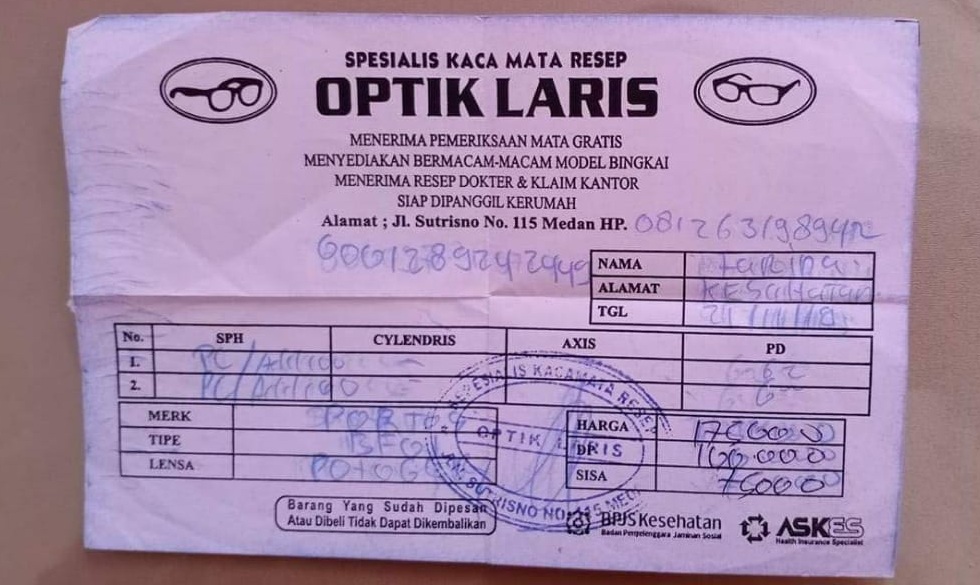 SPESIALIS KACA MATA RESEP
OPTIK LARIS
MENERIMA PEMERIKSAAN MATA GRATIS
MENYEDIAKAN BERMACAM-MACAM MODEL BINGKAI
MENERIMA RESEP DOKTER & KLAIM KANTOR
SIAP DIPANGGIL KERUMAH
Alamat ; Jl. Sutrisno No. 115 Medan HP. 081263198942
NAMA
ALAMAT
TGL
No. SPH CYLENDRIS AXIS PD
1. PC/
2. PC/
MERK
TIPE
LENSA
HARGA 175000
DP 100.000
SISA 75000
SPESIALIS KACAMATA RESEP
OPTIK LARIS
JLN. SUTRISNO NO. 115 MEDAN
Barang Yang Sudah Dipesan
Atau Dibeli Tidak Dapat Dikembalikan
BPJS Kesehatan
Badan Penyelenggara Jaminan Sosial
ASKES
Health Insurance Specialist